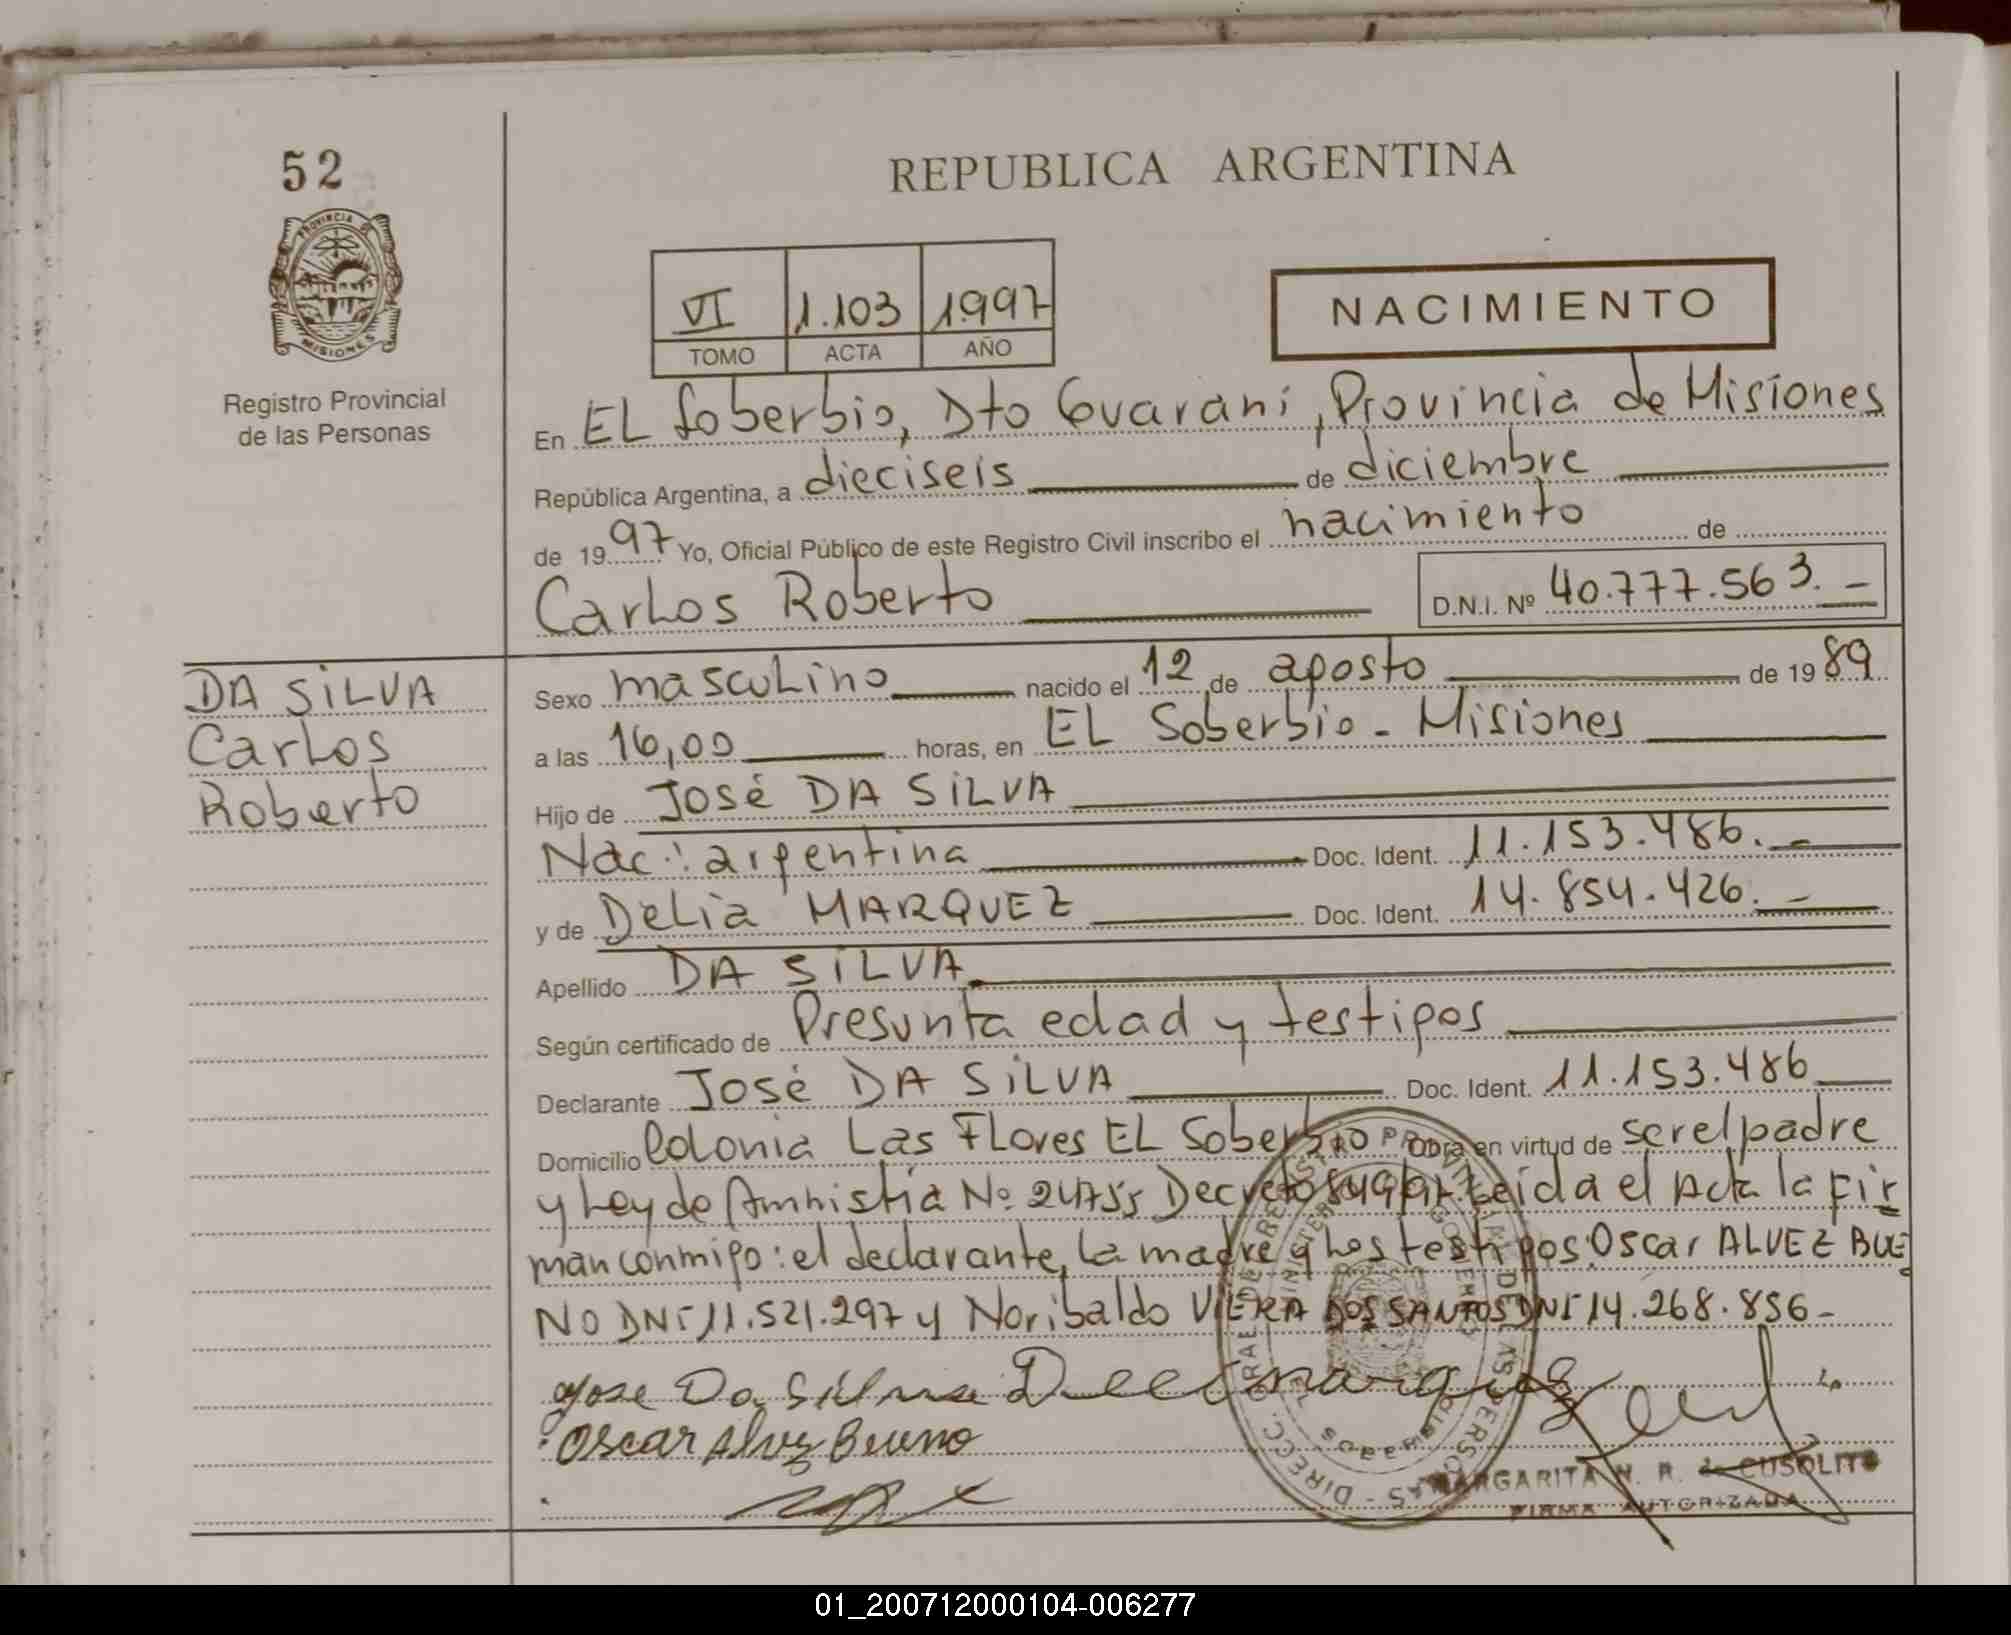 52
REPUBLICA ARGENTINA
PROVINCIA DE
MISIONES
Registro Provincial
de las Personas
VI 1.103 1997
TOMO ACTA AÑO
NACIMIENTO
En EL Soberbio, Dto Guaraní, Provincia de Misiones
República Argentina, a dieciseis de diciembre
de 1997 Yo, Oficial Público de este Registro Civil inscribo el nacimiento de
Carlos Roberto D.N.I. Nº 40.777.563.-
DA SILVA
Carlos
Roberto
Sexo masculino nacido el 12 de agosto de 1989
a las 16,00 horas, en EL Soberbio - Misiones
Hijo de José DA SILVA
Nac: argentina Doc. Ident. 11.153.486.-
y de Delia MARQUEZ Doc. Ident. 14.854.426.-
Apellido DA SILVA
Según certificado de Presunta edad y testigos
Declarante José DA SILVA Doc. Ident. 11.153.486
Domicilio Colonia Las Flores EL Soberbio Obra en virtud de ser el padre
y Ley de Amnistia Nº 24755 Decreto Leída el Acta la fir
man conmigo: el declarante, la madre y los testigos: Oscar ALVEZ BUE
NO DNI 11.521.297 y Noribaldo VIERA DOS SANTOS DNI 14.268.856-
Jose Da Silva
Oscar Alvez Bueno
MARGARITA N. R. de CUSOLITO
FIRMA AUTORIZADA
01_200712000104-006277